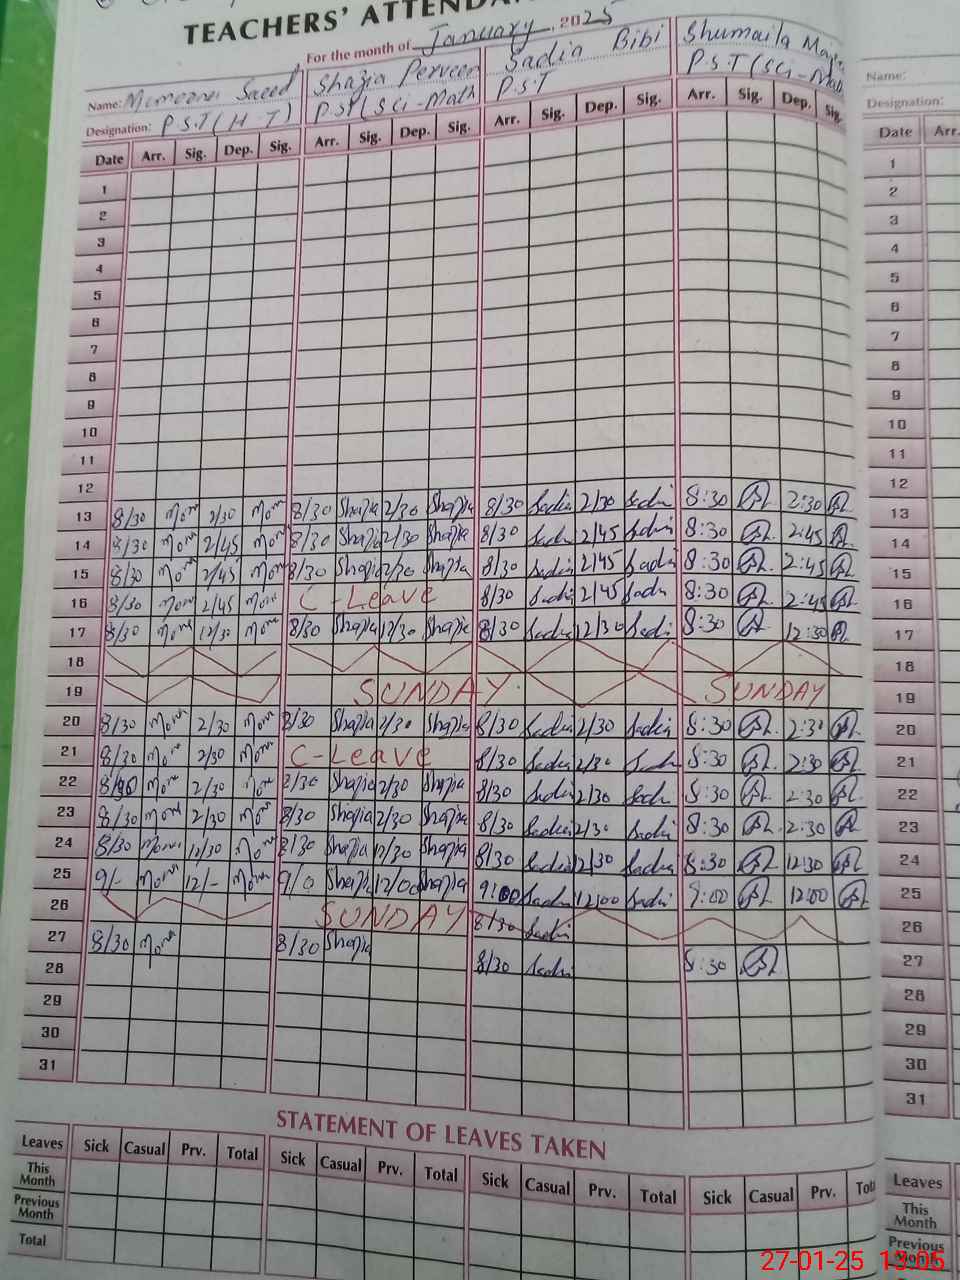 TEACHERS' ATTENDA
For the month of January, 2025
Name: Saeed Shazia Perveen Sadia Bibi Shumaila
Designation: P.S.T (H.T) P.ST (Sci-Math P.S.T P.S.T (Sci-Math
Date Arr. Sig. Dep. Sig. Arr. Sig. Dep. Sig. Arr. Sig. Dep. Sig. Arr. Sig. Dep. Sig.
1
2
3
4
5
6
7
8
9
10
11
12
13 8/30 Mona 2/30 Mona 8/30 Shazia 2/30 Shazia 8/30 Sadia 2/30 Sadia 8:30 2:30 13
14 8/30 Mona 2/45 Mona 8/30 Shazia 2/30 Shazia 8/30 Sadia 2/45 Sadia 8:30 2:45 14
15 8/30 Mona 2/45 Mona 8/30 Shazia 2/30 Shazia 8/30 Sadia 2/45 Sadia 8:30 2:45 15
16 8/30 Mona 2/45 Mona C-Leave 8/30 Sadia 2/45 Sadia 8:30 2:45 16
17 8/30 Mona 12/30 Mona 8/30 Shazia 12/30 Shazia 8/30 Sadia 12/30 Sadia 8:30 12:30 17
18 18
19 SUNDAY SUNDAY 19
20 8/30 Mona 2/30 Mona 8/30 Shazia 2/30 Shazia 8/30 Sadia 2/30 Sadia 8:30 2:30 20
21 8/30 Mona 2/30 Mona C-Leave 8/30 Sadia 2/30 Sadia 8:30 2:30 21
22 Mona 2/30 Mona 8/30 Shazia 2/30 Shazia 8/30 Sadia 2/30 Sadia 8:30 2:30 22
23 8/30 Mona 2/30 Mona 8/30 Shazia 2/30 Shazia 8/30 Sadia 2/30 Sadia 8:30 2:30 23
24 8/30 Mona 12/30 Mona 8/30 Shazia 12/30 Shazia 8/30 Sadia 12/30 Sadia 8:30 12:30 24
25 9/- Mona 12/- Mona 9/0 Shazia 12/00 Shazia 9:00 Sadia 12:00 Sadia 9:00 12:00 25
26 SUNDAY 8/30 Sadia 26
27 8/30 Mona 8/30 Shazia 8/30 Sadia 8:30 27
28 28
29 29
30 30
31 31
STATEMENT OF LEAVES TAKEN
Leaves Sick Casual Prv. Total Sick Casual Prv. Total Sick Casual Prv. Total Sick Casual Prv.
This Month
Previous Month
Total
Name:
Designation:
Date Arr.
1
2
3
4
5
6
7
8
9
10
11
12
Leaves
This Month
Previous Month
27-01-25 13:05